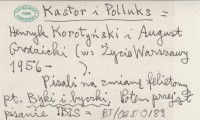 Kastor i Polluks =
Henryk Korotyński i August
Grodzicki (w: Życie Warszawy
1956 – ).
Pisali na zmianę felietony
pt. Byki i byczki. Potem przejął
pisanie IBIS = BT/02.50/89